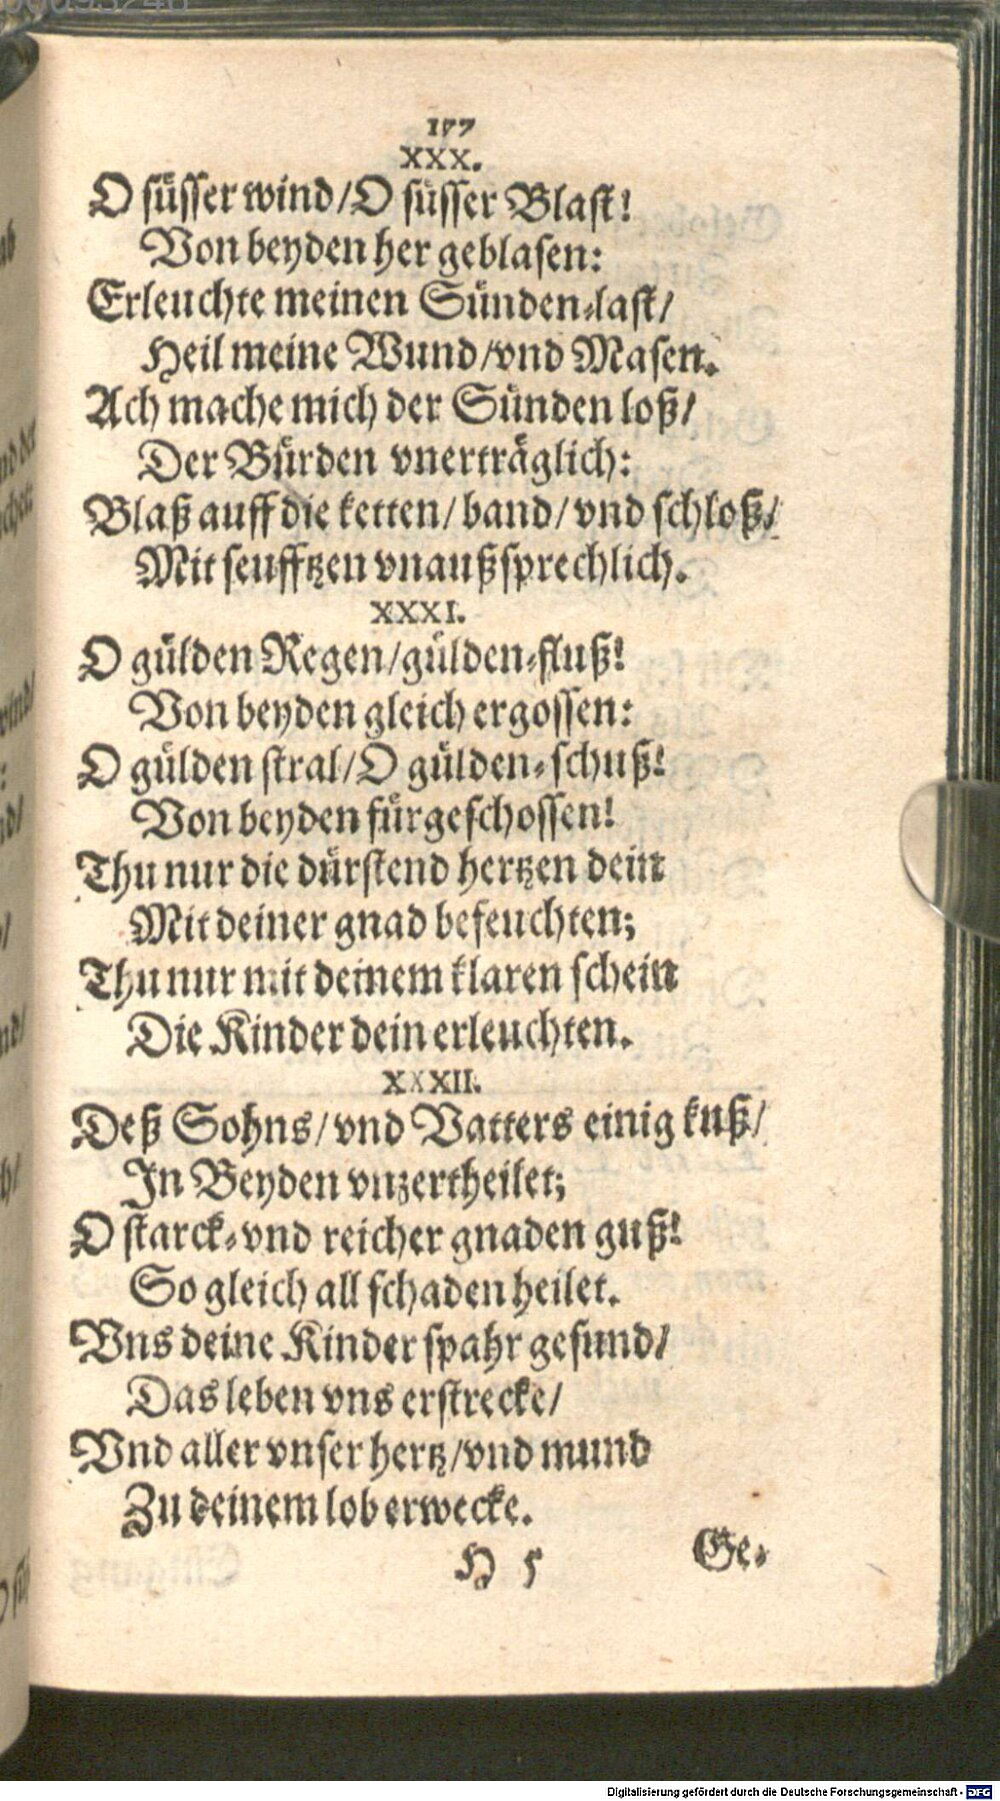 177
XXX.
O süsser wind/O süsser Blast!
Von beyden her geblasen:
Erleuchte meinen Sünden-last/
Heil meine Wund/vnd Masen.
Ach mache mich der Sünden loß/
Der Bürden vnerträglich:
Blaß auff die ketten/ band/ vnd schloß/
Mit seufftzen vnaußsprechlich.
XXXI.
O gülden Regen/gülden-fluß!
Von beyden gleich ergossen:
O gülden stral/O gülden-schuß!
Von beyden fürgeschossen!
Thu nur die dürstend hertzen dein
Mit deiner gnad befeuchten;
Thu nur mit deinem klaren schein
Die Kinder dein erleuchten.
XXXII.
Deß Sohns/vnd Vatters einig kuß/
In Beyden vnzertheilet;
O starck-vnd reicher gnaden guß!
So gleich all schaden heilet.
Vns deine Kinder spahr gesund/
Das leben vns erstrecke/
Vnd aller vnser hertz/vnd mund
Zu deinem lob erwecke.
H 5 Ge-
Digitalisierung gefördert durch die Deutsche Forschungsgemeinschaft - DFG